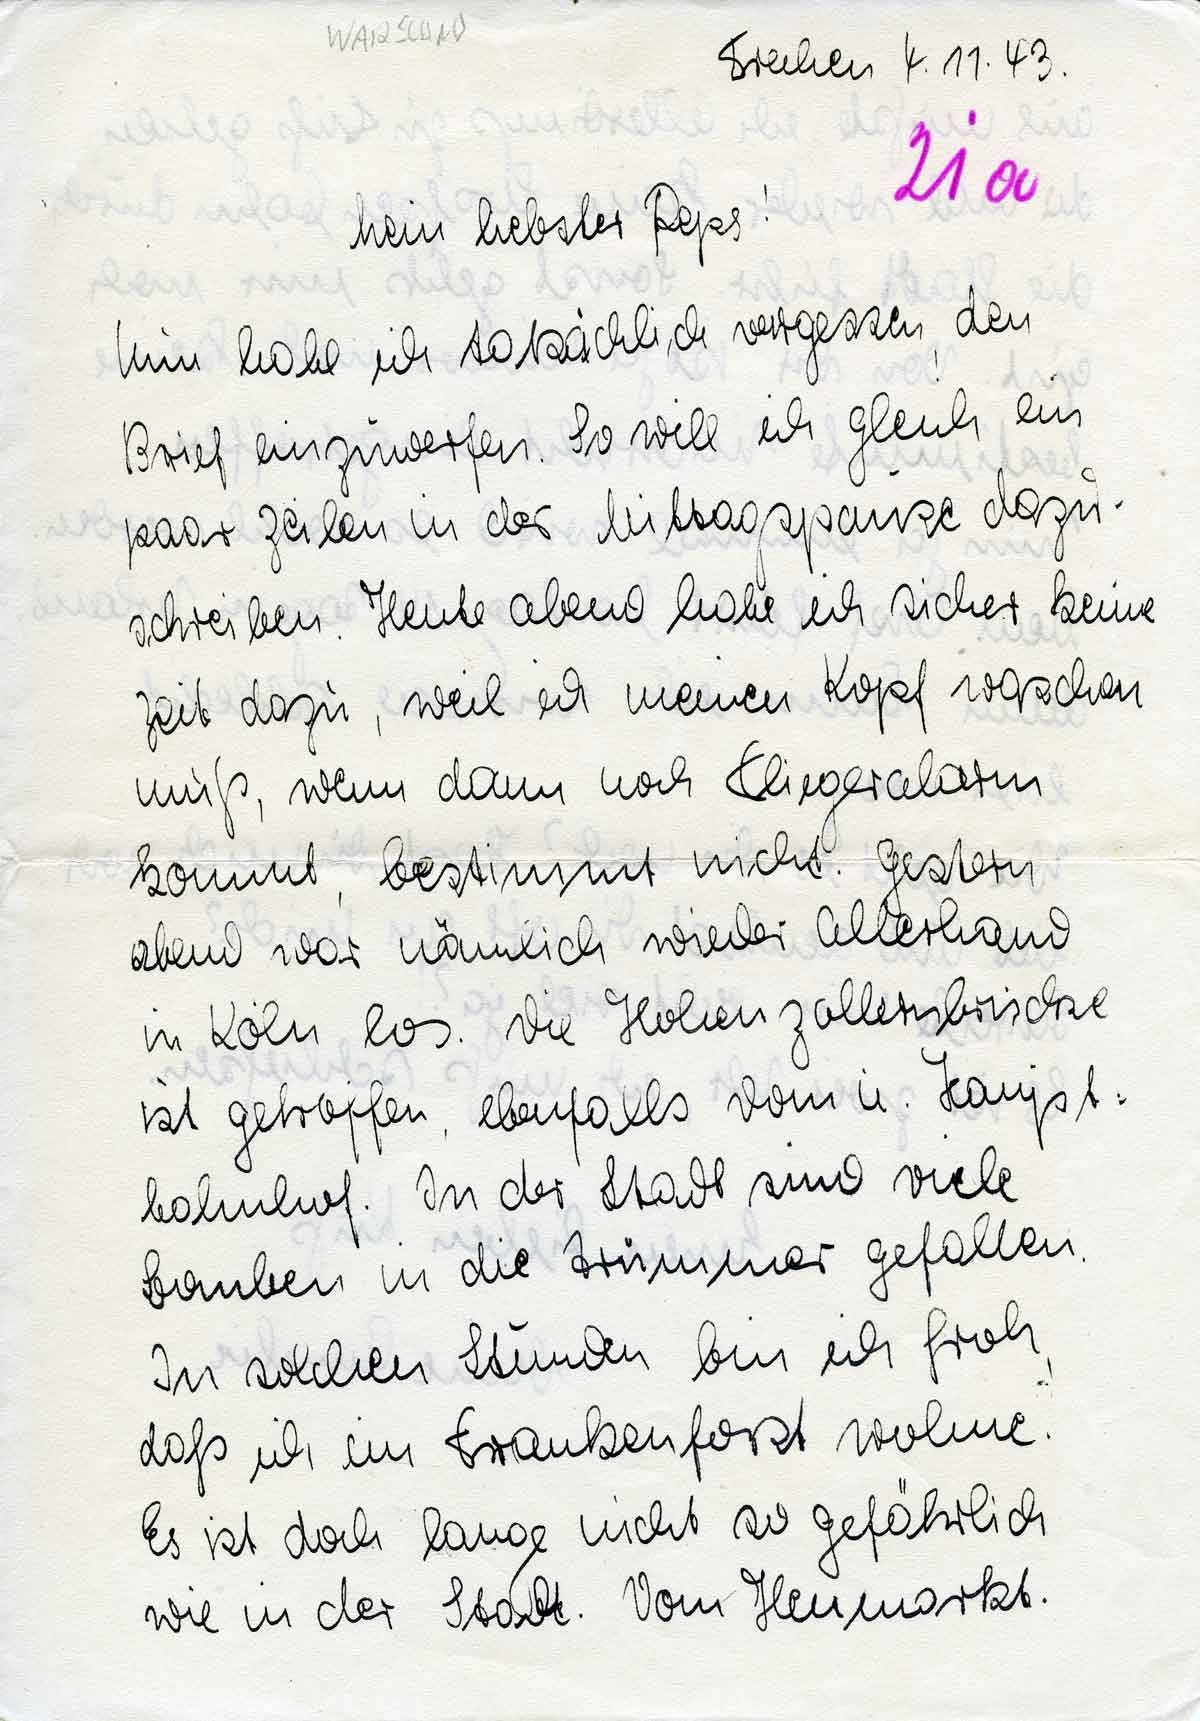 WARSCHAU
Frechen 4.11.43.
21a
Mein liebster Peps!
Nun habe ich tatsächlich vergessen, den
Brief einzuwerfen. So will ich gleich ein
paar Zeilen in der Mittagspause dazu-
schreiben. Heute abend habe ich sicher keine
Zeit dazu, weil ich meinen Kopf waschen
muß, wenn dann noch Fliegeralarm
kommt, bestimmt nicht. Gestern
abend war nämlich wieder Allerhand
in Köln los. Die Hohenzollernbrücke
ist getroffen, ebenfalls Dom u. Haupt=
bahnhof. In der Stadt sind viele
Bomben in die Trümmer gefallen.
In solchen Stunden bin ich froh,
daß ich in Frankenforst wohne.
Es ist doch lange nicht so gefährlich
wie in der Stadt. Vom Heumarkt.